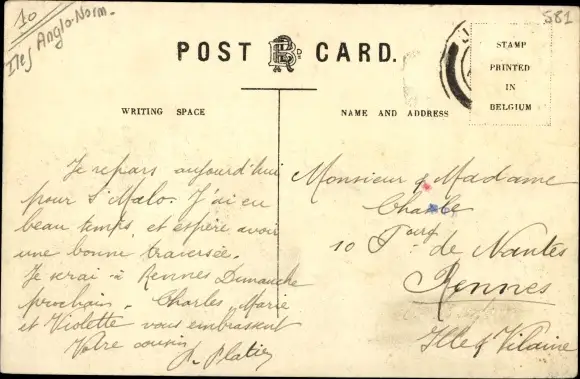 10
Iles Anglo-Norm.
S81
POST CARD.
STAMP
PRINTED
IN
BELGIUM
WRITING SPACE
NAME AND ADDRESS
Je repars aujourd'hui
pour St Malo. J'ai eu
beau temps, et espère avoir
une bonne traversée.
Je serai à Rennes Dimanche
prochain. Charles, Marie
et Violette vous embrassent
Votre cousin
Monsieur & Madame
10 Fourg de Nantes
Rennes
Ille & Vilaine